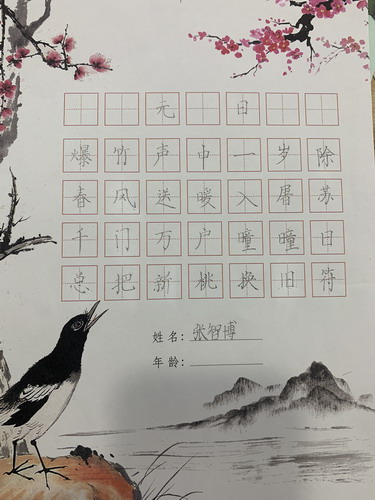 元日
爆竹声中一岁除
春风送暖入屠苏
千门万户曈曈日
总把新桃换旧符
姓名：张智博
年龄：